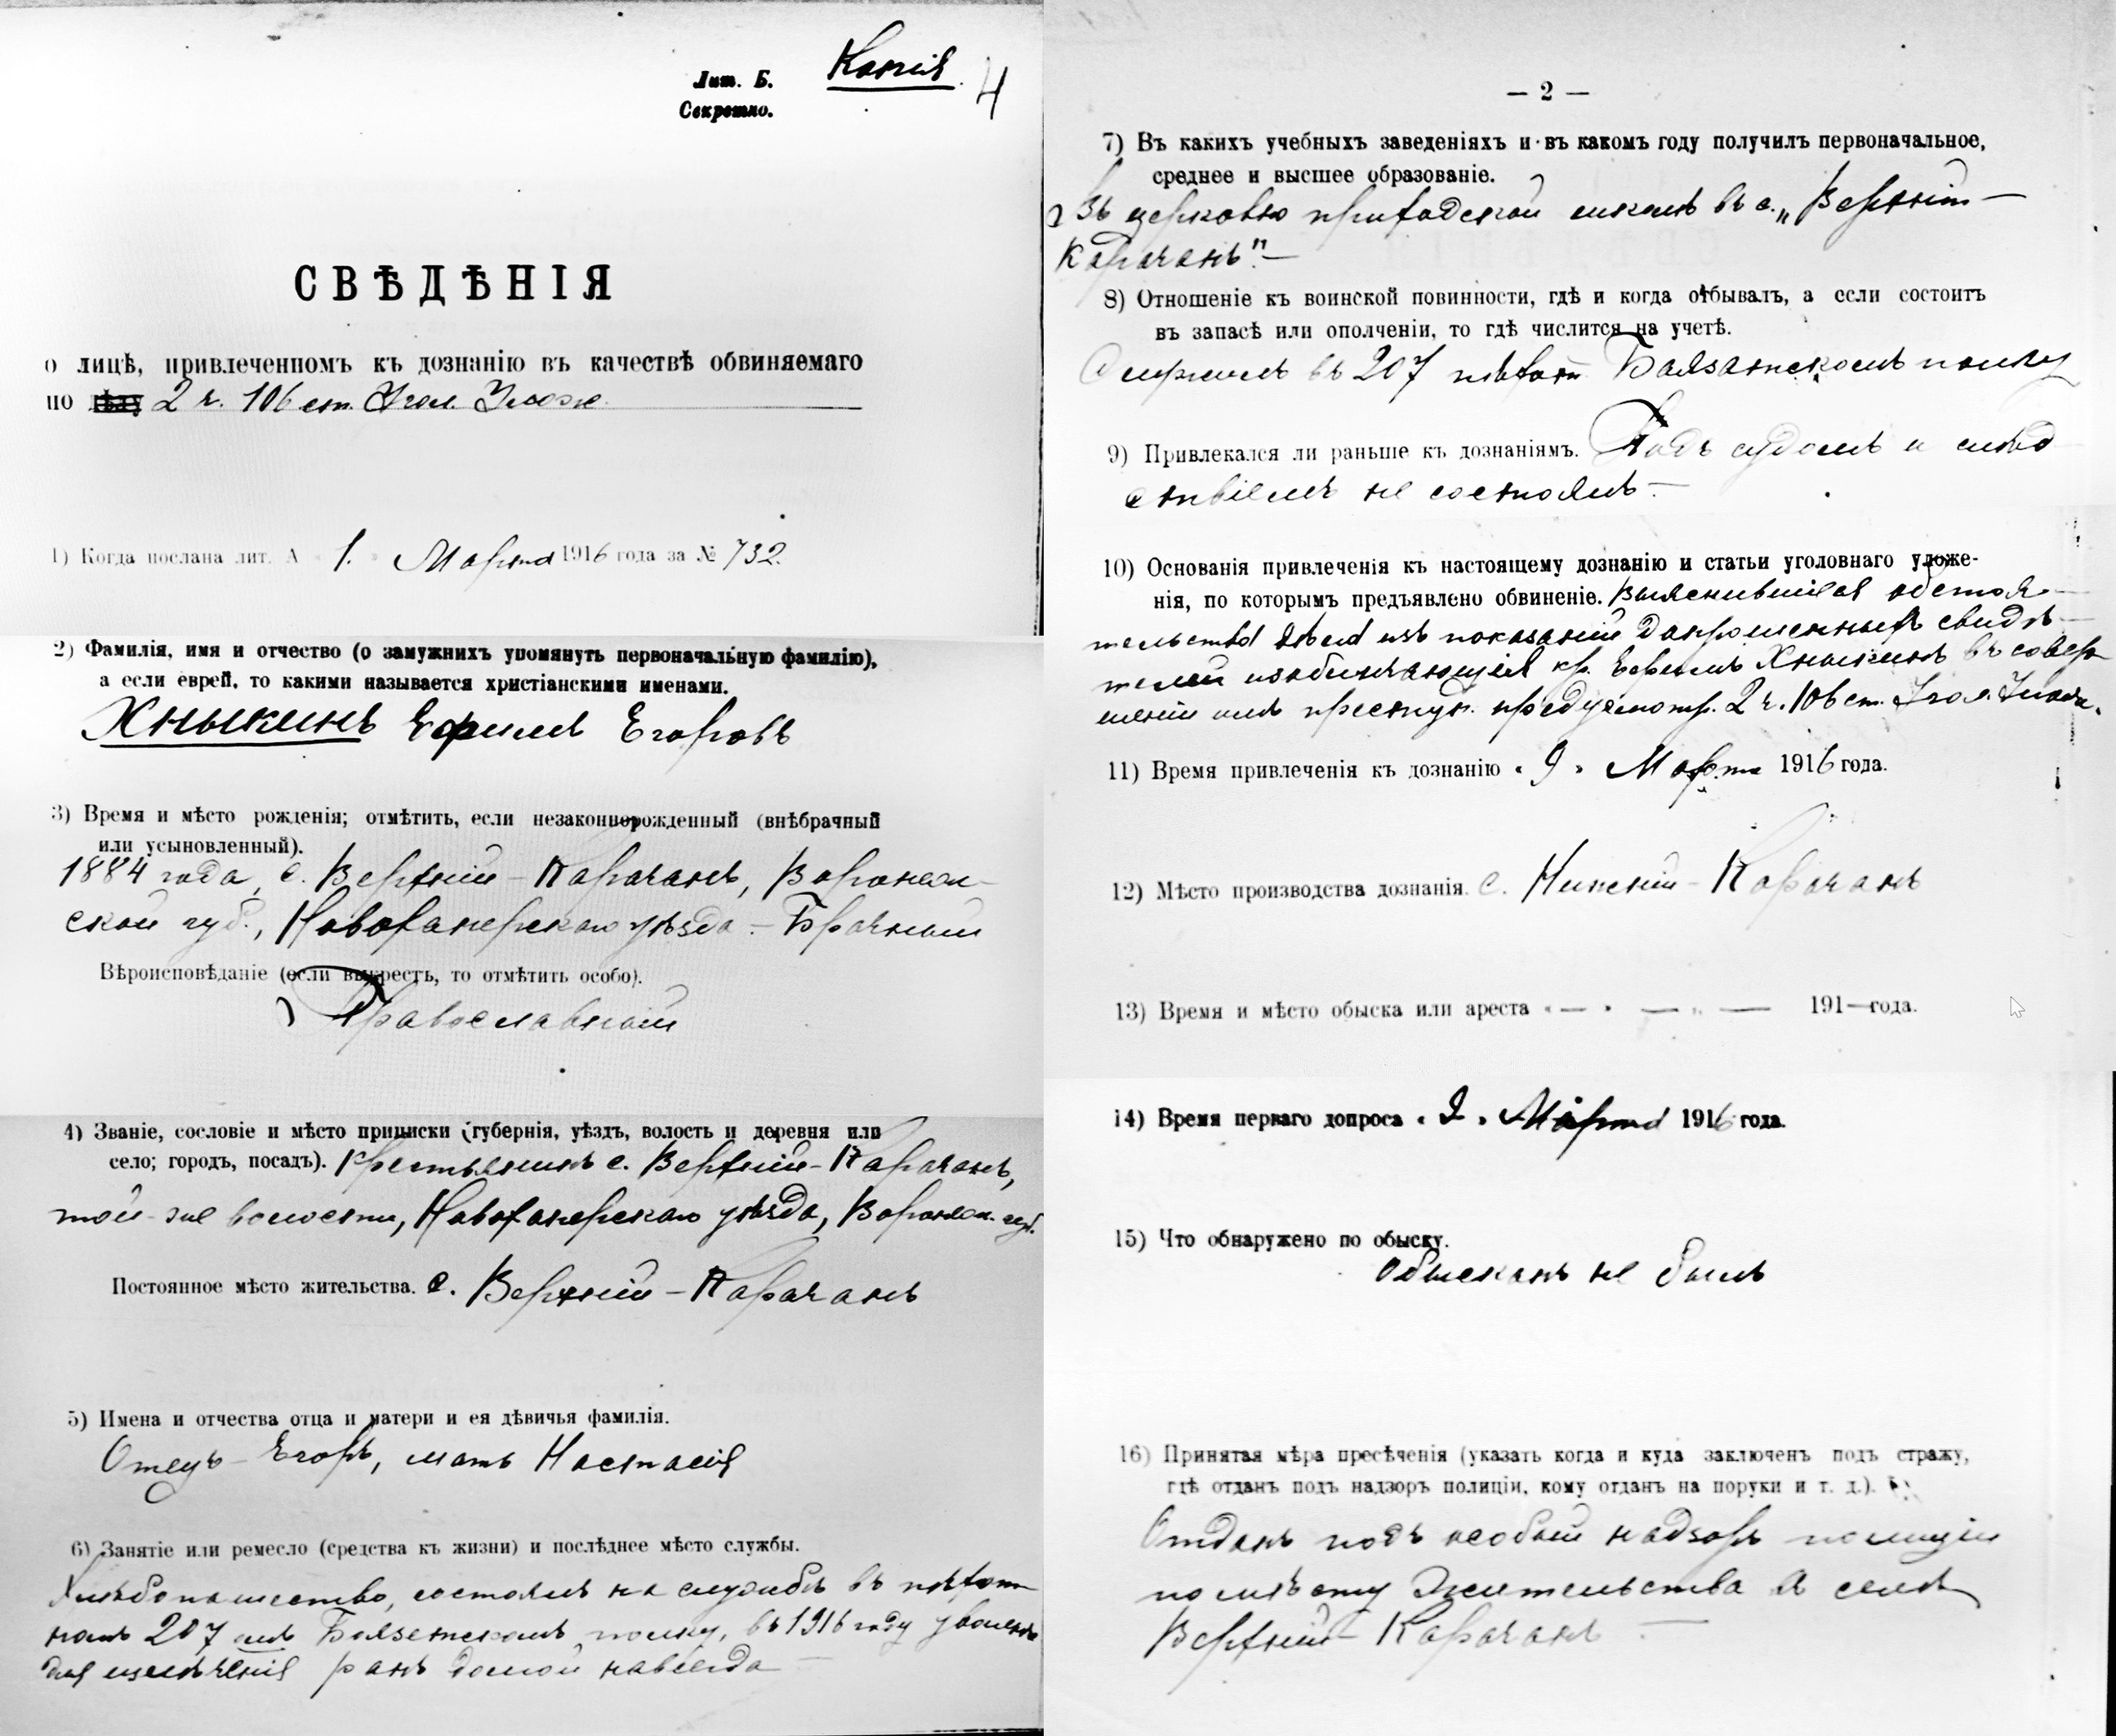 Лит. Б.
Секретно.
Копія
4
СВѢДѢНІЯ
о лицѣ, привлеченномъ къ дознанію въ качествѣ обвиняемаго
по 2 ч. 106 ст. Угол. Улож.
1) Когда послана лит. А « 1. » Марта 1916 года за № 732.
2) Фамилія, имя и отчество (о замужнихъ упомянуть первоначальную фамилію),
а если еврей, то какими называется христіанскими именами.
Хныкинъ Ефимъ Егоровъ
3) Время и мѣсто рожденія; отмѣтить, если незаконнорожденный (внѣбрачный
или усыновленный).
1884 года, с. Верхній-Карачанъ, Воронеж-
ской губ., Новохоперскаго уѣзда - Брачный
Вѣроисповѣданіе (если выкрестъ, то отмѣтить особо).
Православный
4) Званіе, сословіе и мѣсто приписки (губернія, уѣздъ, волость и деревня или
село; городъ, посадъ). Крестьянинъ с. Верхній-Карачанъ,
той-же волости, Новохоперскаго уѣзда, Воронеж. губ.
Постоянное мѣсто жительства. с. Верхній-Карачанъ
5) Имена и отчества отца и матери и ея дѣвичья фамилія.
Отецъ - Егоръ, мать Настасія
6) Занятіе или ремесло (средства къ жизни) и послѣднее мѣсто службы.
Хлѣбопашество, состоялъ на службѣ въ пѣхот
номъ 207 омъ Баязетскомъ полку, въ 1916 году уволенъ
для излѣченія ранъ домой навсегда —
— 2 —
7) Въ какихъ учебныхъ заведеніяхъ и въ какомъ году получилъ первоначальное,
среднее и высшее образованіе.
Въ церковно приходской школѣ въ с. „Верхній-
Карачанъ". —
8) Отношеніе къ воинской повинности, гдѣ и когда отбывалъ, а если состоитъ
въ запасѣ или ополченіи, то гдѣ числится на учетѣ.
Служилъ въ 207 пѣхот. Баязетскомъ полку
9) Привлекался ли раньше къ дознаніямъ. Подъ судомъ и слѣд
ствіемъ не состоялъ. —
10) Основанія привлеченія къ настоящему дознанію и статьи уголовнаго уложе-
нія, по которымъ предъявлено обвиненіе. Выяснившіяся обстоя-
тельства дѣла изъ показаній допрошенныхъ свидѣ-
телей изобличающія кр. Ефимъ Хныкинъ въ совер
шеніи имъ преступ. предусмотр. 2 ч. 106 ст. Угол. Улож.
11) Время привлеченія къ дознанію « 9 » Марта 1916 года.
12) Мѣсто производства дознанія. с. Нижній-Карачанъ
13) Время и мѣсто обыска или ареста « — » — „ — 191— года.
14) Время перваго допроса « 9 » Марта 1916 года.
15) Что обнаружено по обыску.
Обысканъ не былъ
16) Принятая мѣра пресѣченія (указать когда и куда заключенъ подъ стражу,
гдѣ отданъ подъ надзоръ полиціи, кому отданъ на поруки и т. д.).
Отданъ подъ особый надзоръ полиціи
по мѣсту жительства въ селѣ
Верхній-Карачанъ —